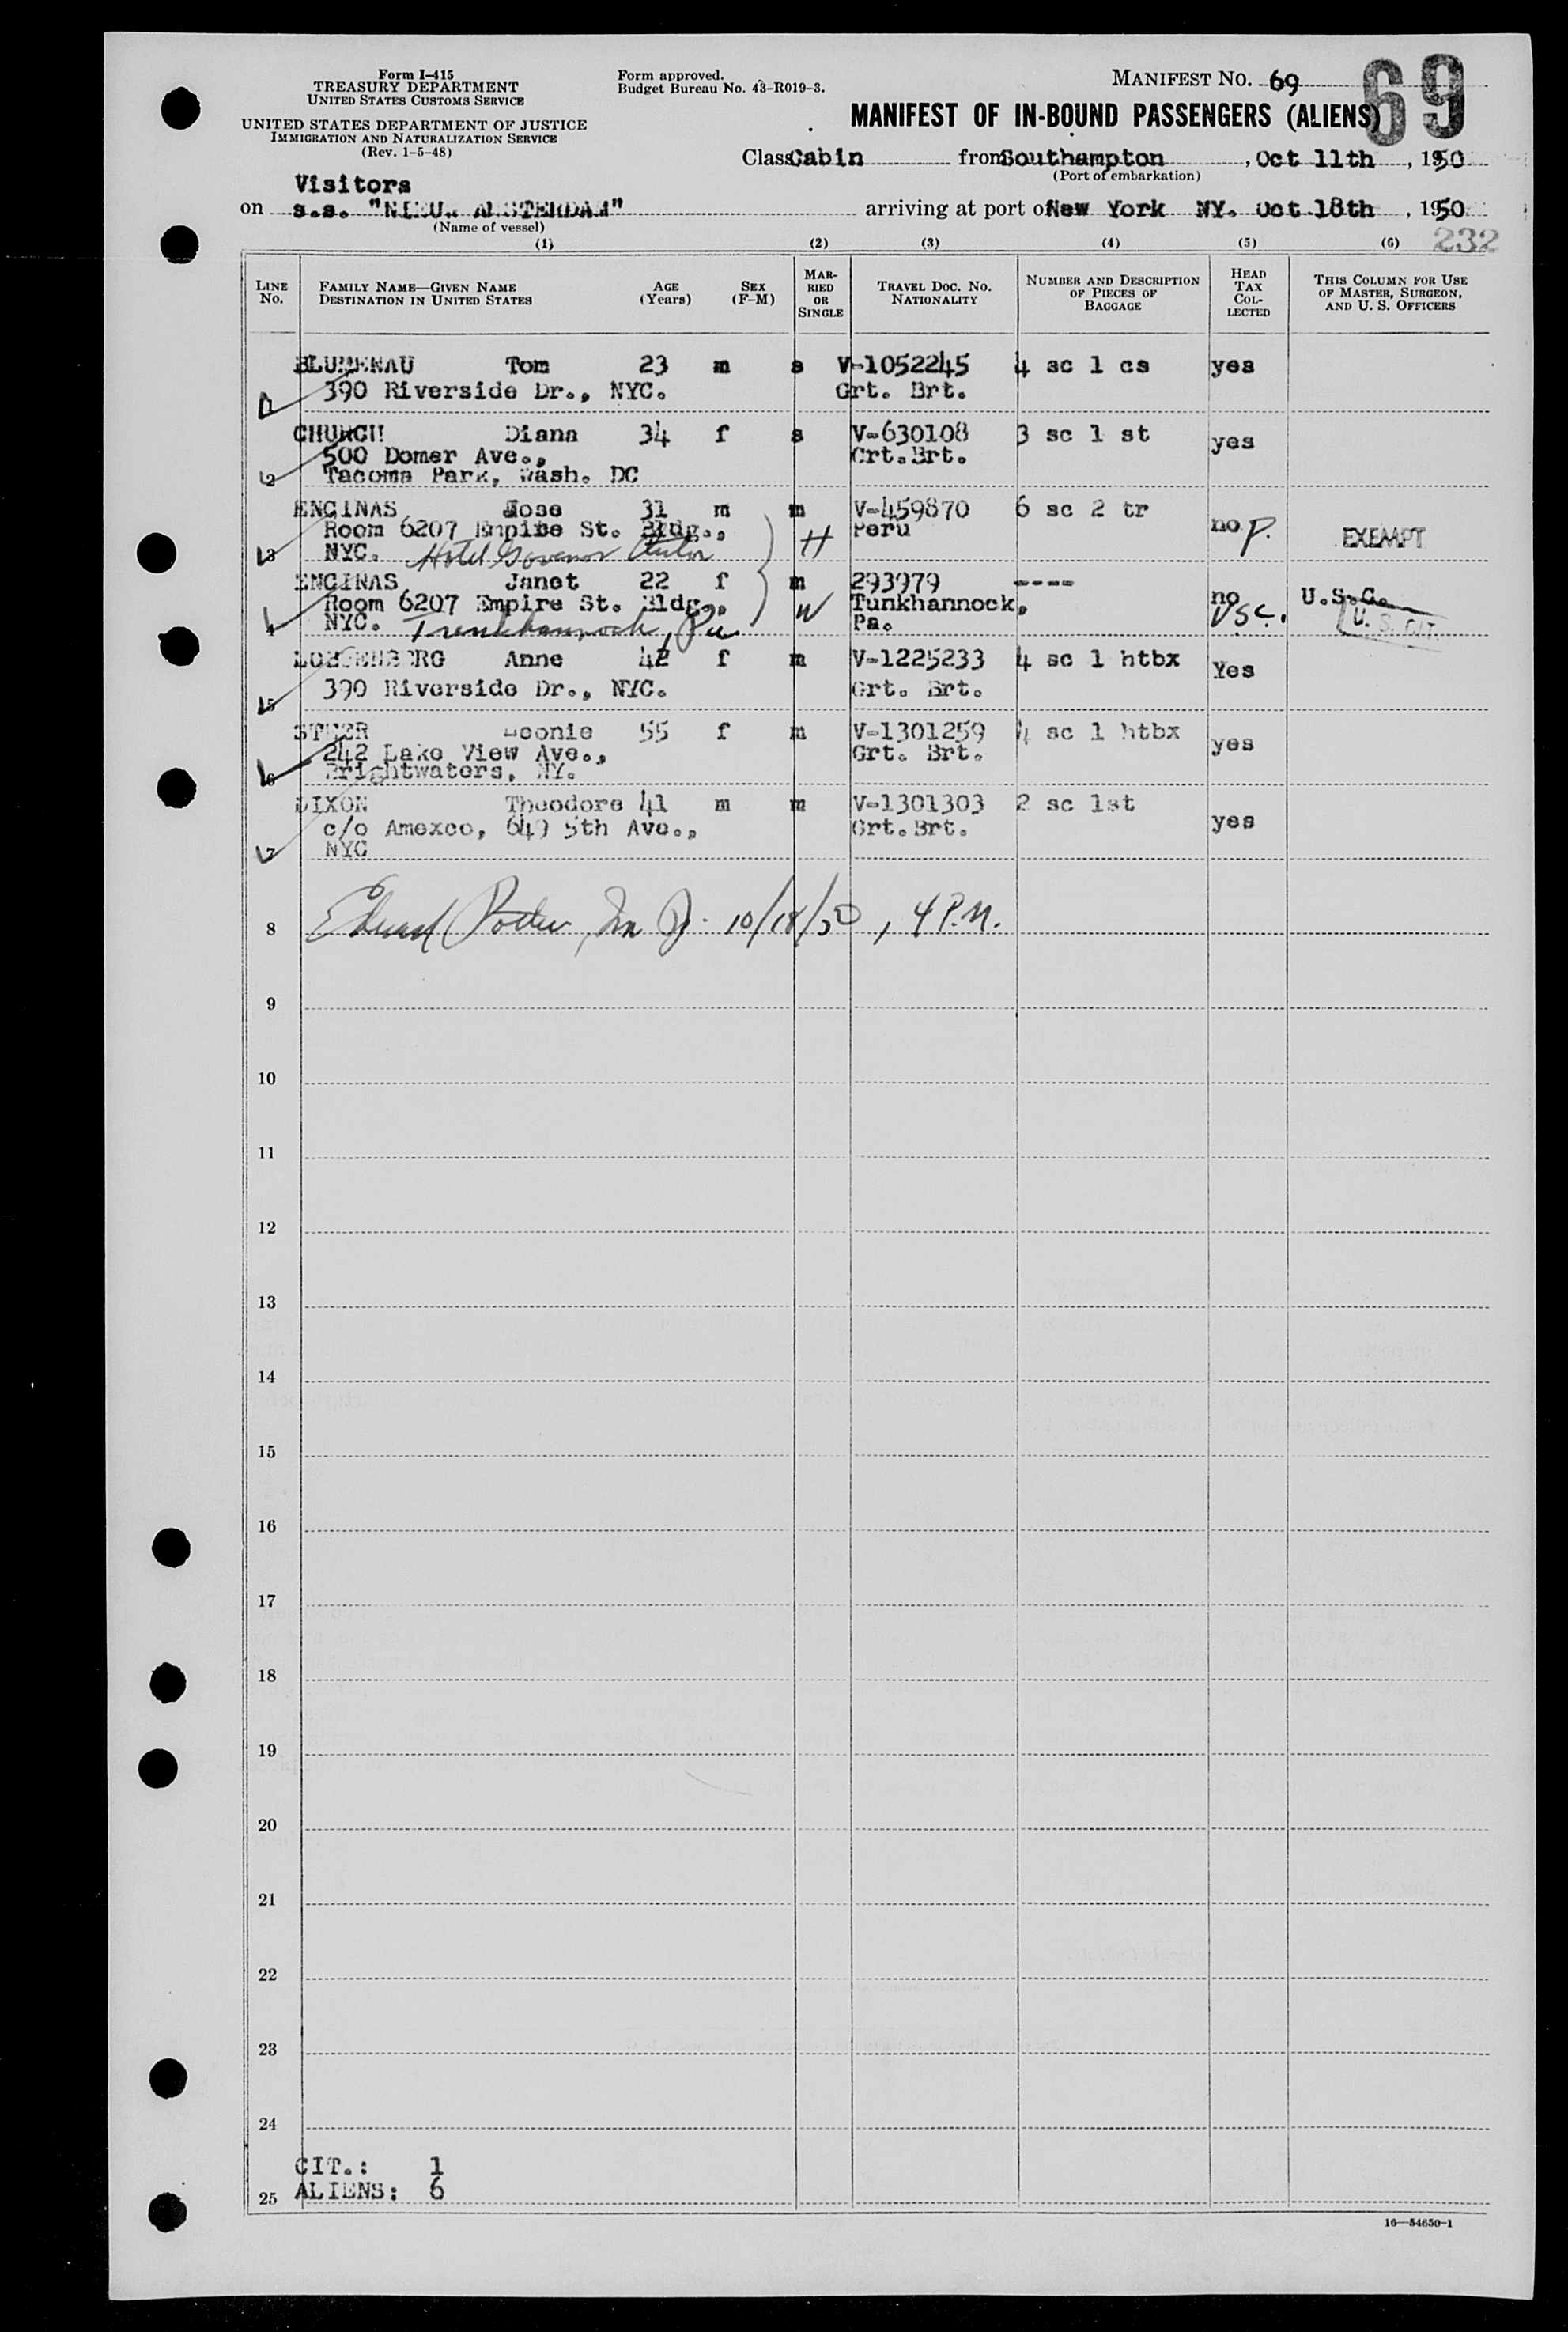 Form I-415
TREASURY DEPARTMENT
UNITED STATES CUSTOMS SERVICE
UNITED STATES DEPARTMENT OF JUSTICE
IMMIGRATION AND NATURALIZATION SERVICE
(Rev. 1-5-48)
Form approved.
Budget Bureau No. 43-R019-3.
MANIFEST NO. 69
69
MANIFEST OF IN-BOUND PASSENGERS (ALIENS)
Class Cabin from Southampton, Oct 11th, 1950
(Port of embarkation)
Visitors
on s.s. "NIEUW AMSTERDAM" arriving at port of New York NY. Oct 18th, 1950
(Name of vessel)
232
(1) (2) (3) (4) (5) (6)
LINE No. FAMILY NAME—GIVEN NAME DESTINATION IN UNITED STATES AGE (Years) SEX (F-M) MARRIED OR SINGLE TRAVEL DOC. NO. NATIONALITY NUMBER AND DESCRIPTION OF PIECES OF BAGGAGE HEAD TAX COLLECTED THIS COLUMN FOR USE OF MASTER, SURGEON, AND U. S. OFFICERS
BLUMENAU Tom 23 m s V-1052245 4 sc 1 cs yes
1 390 Riverside Dr., NYC. Grt. Brt.
CHURCH Diana 34 f s V-630108 3 sc 1 st yes
500 Domer Ave., Grt.Brt.
2 Tacoma Park, Wash. DC
ENCINAS Jose 31 m m V-459870 6 sc 2 tr
Room 6207 Empire St. Bldg., H Peru no P. EXEMPT
3 NYC. Hotel Governor
ENCINAS Janet 22 f m 293979 ----
Room 6207 Empire St. Bldg., W Tunkhannock, no U.S.C.
4 NYC. Trenkhannock, Pa. Pa. USC. U. S. CIT.
Anne 42 f m V-1225233 4 sc 1 htbx Yes
5 390 Riverside Dr., NYC. Grt. Brt.
Leonie 55 f m V-1301259 4 sc 1 htbx
242 Lake View Ave., Grt. Brt. yes
6 Brightwaters, NY.
DIXON Theodore 41 m m V-1301303 2 sc 1st
c/o Amexco, 649 5th Ave., Grt.Brt. yes
7 NYC
8 Edward Potter, 10/18/50, 4 P.M.
9
10
11
12
13
14
15
16
17
18
19
20
21
22
23
24
CIT.: 1
25 ALIENS: 6
16—54650-1